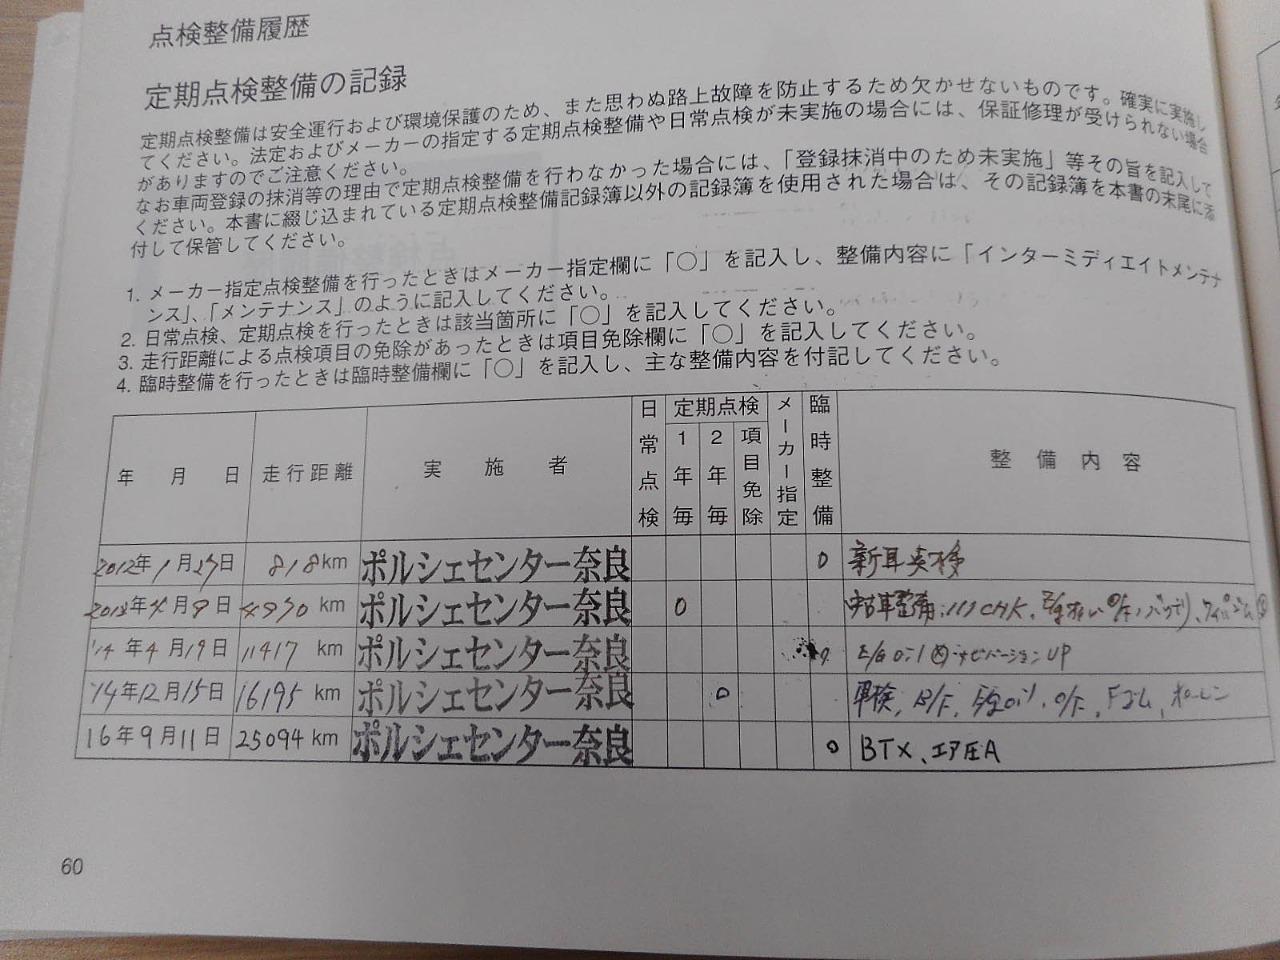 点検整備履歴
定期点検整備の記録
定期点検整備は安全運行および環境保護のため、また思わぬ路上故障を防止するため欠かせないものです。確実に実施し
てください。法定およびメーカーの指定する定期点検整備や日常点検が未実施の場合には、保証修理が受けられない場合
がありますのでご注意ください。
なお車両登録の抹消等の理由で定期点検整備を行わなかった場合には、「登録抹消中のため未実施」等その旨を記入して
ください。本書に綴じ込まれている定期点検整備記録簿以外の記録簿を使用された場合は、その記録簿を本書の末尾に添
付して保管してください。
1. メーカー指定点検整備を行ったときはメーカー指定欄に「○」を記入し、整備内容に「インターミディエイトメンテナ
ンス」、「メンテナンス」のように記入してください。
2. 日常点検、定期点検を行ったときは該当箇所に「○」を記入してください。
3. 走行距離による点検項目の免除があったときは項目免除欄に「○」を記入してください。
4. 臨時整備を行ったときは臨時整備欄に「○」を記入し、主な整備内容を付記してください。
年 月 日 走行距離 実施者 日常点検 定期点検 1年毎 2年毎 項目免除 メーカー指定 臨時整備 整備内容
2012年1月27日 818km ポルシェセンター奈良 ○ 新車
2013年4月9日 4930 km ポルシェセンター奈良 ○
'14年4月19日 11417 km ポルシェセンター奈良 ナビバージョンUP
'14年12月15日 16195 km ポルシェセンター奈良 ○ 車検、B/F、O/F、Fゴム、
16年9月11日 25094 km ポルシェセンター奈良 ○ BTX、エア圧A
60